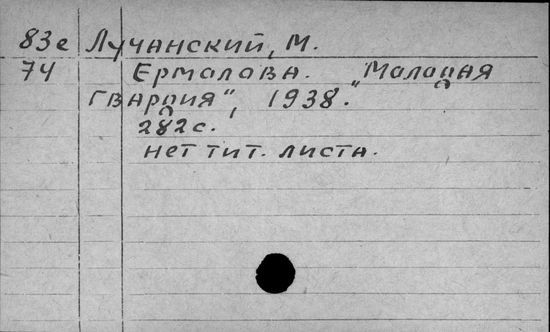 83е Лучанский, М.
74 Ермолова. „Молодая
Гвардия", 1938.
282с.
нет тит. листа.